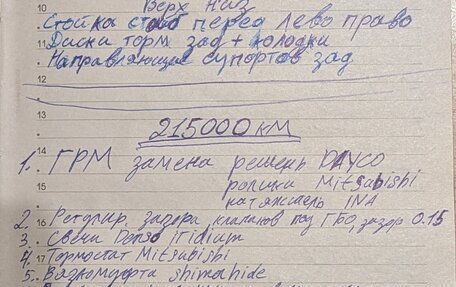 10 Верх низ
Стойка стаб перед лево право
Диски торм зад + колодки
11
Направляющие супортов зад
12
13
14 215000 км
1. ГРМ замена ремень DAYCO
15 ролики Mitsubishi
натяжитель INA
16
2. Регулир. зазора клапанов под ГБО, зазор 0.15
3. Свечи Denso iridium
17
4. Термостат Mitsubishi
5. Вязкомуфта shimahide